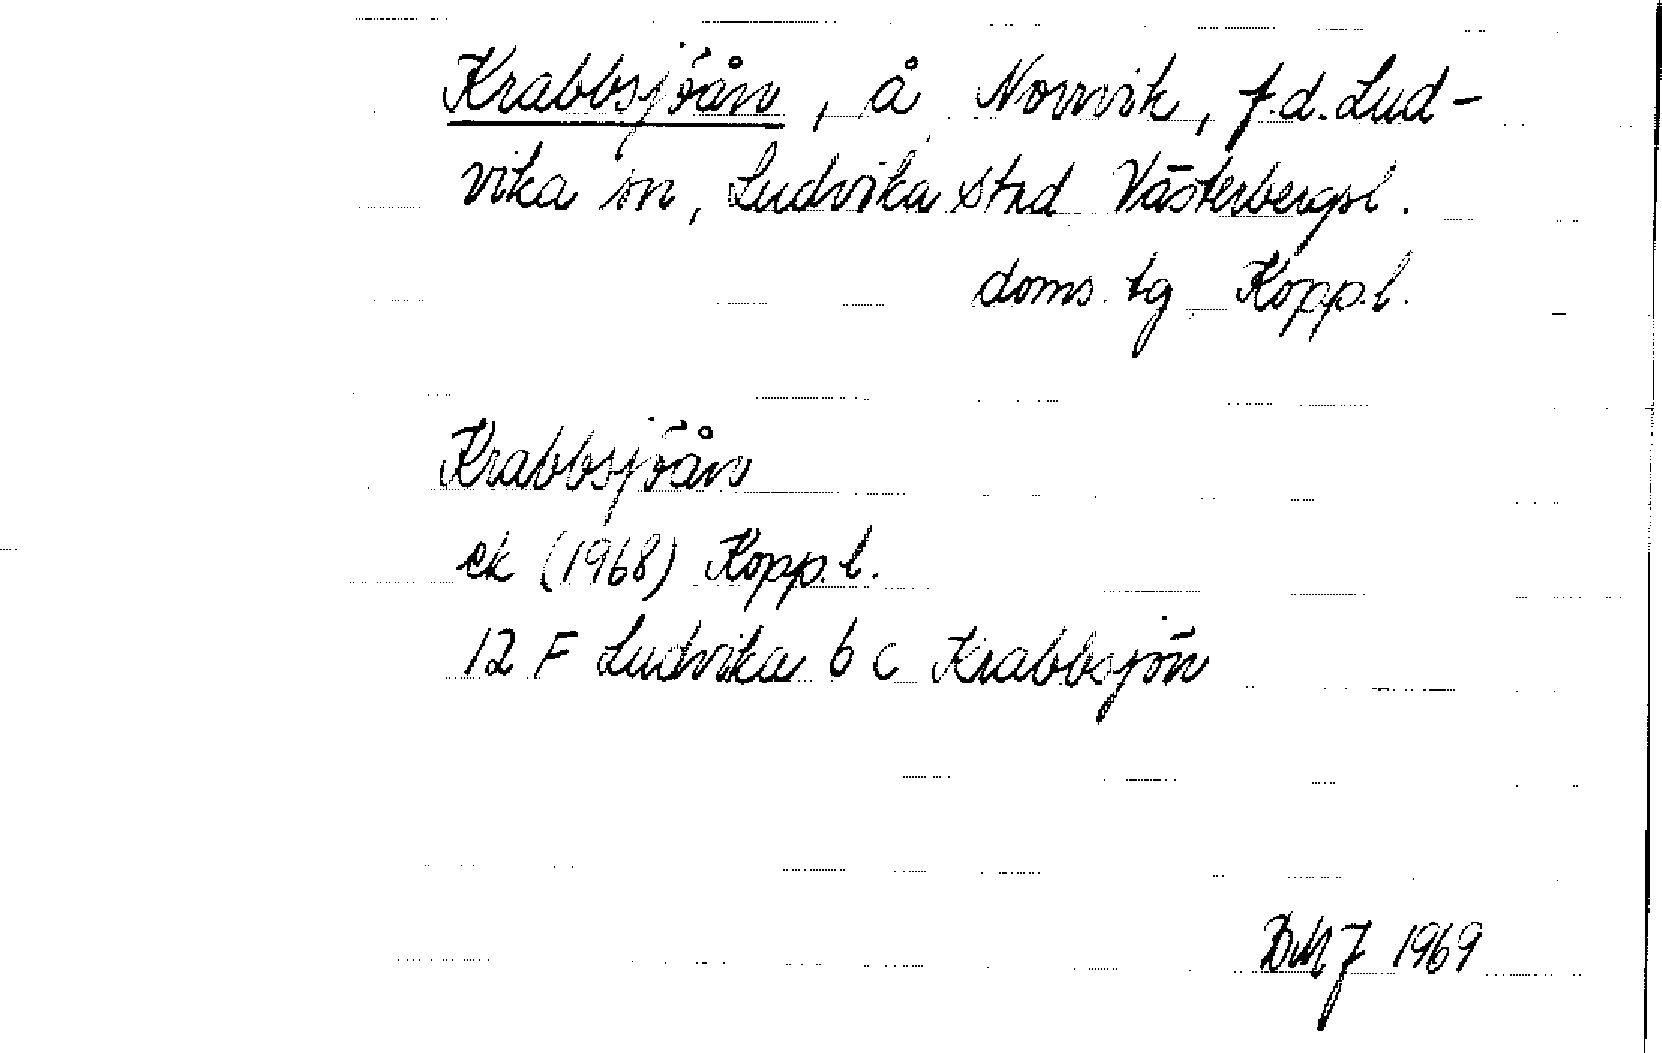 Krabbsjöån, å Norrvik, f.d. Lud-
vika sn, Ludvika stad Västerbergsl.
doms. tg Kopp.l.
Krabbsjöån
ek (1968) Kopp.l.
12 F Ludvika b c Krabbsjön
1969